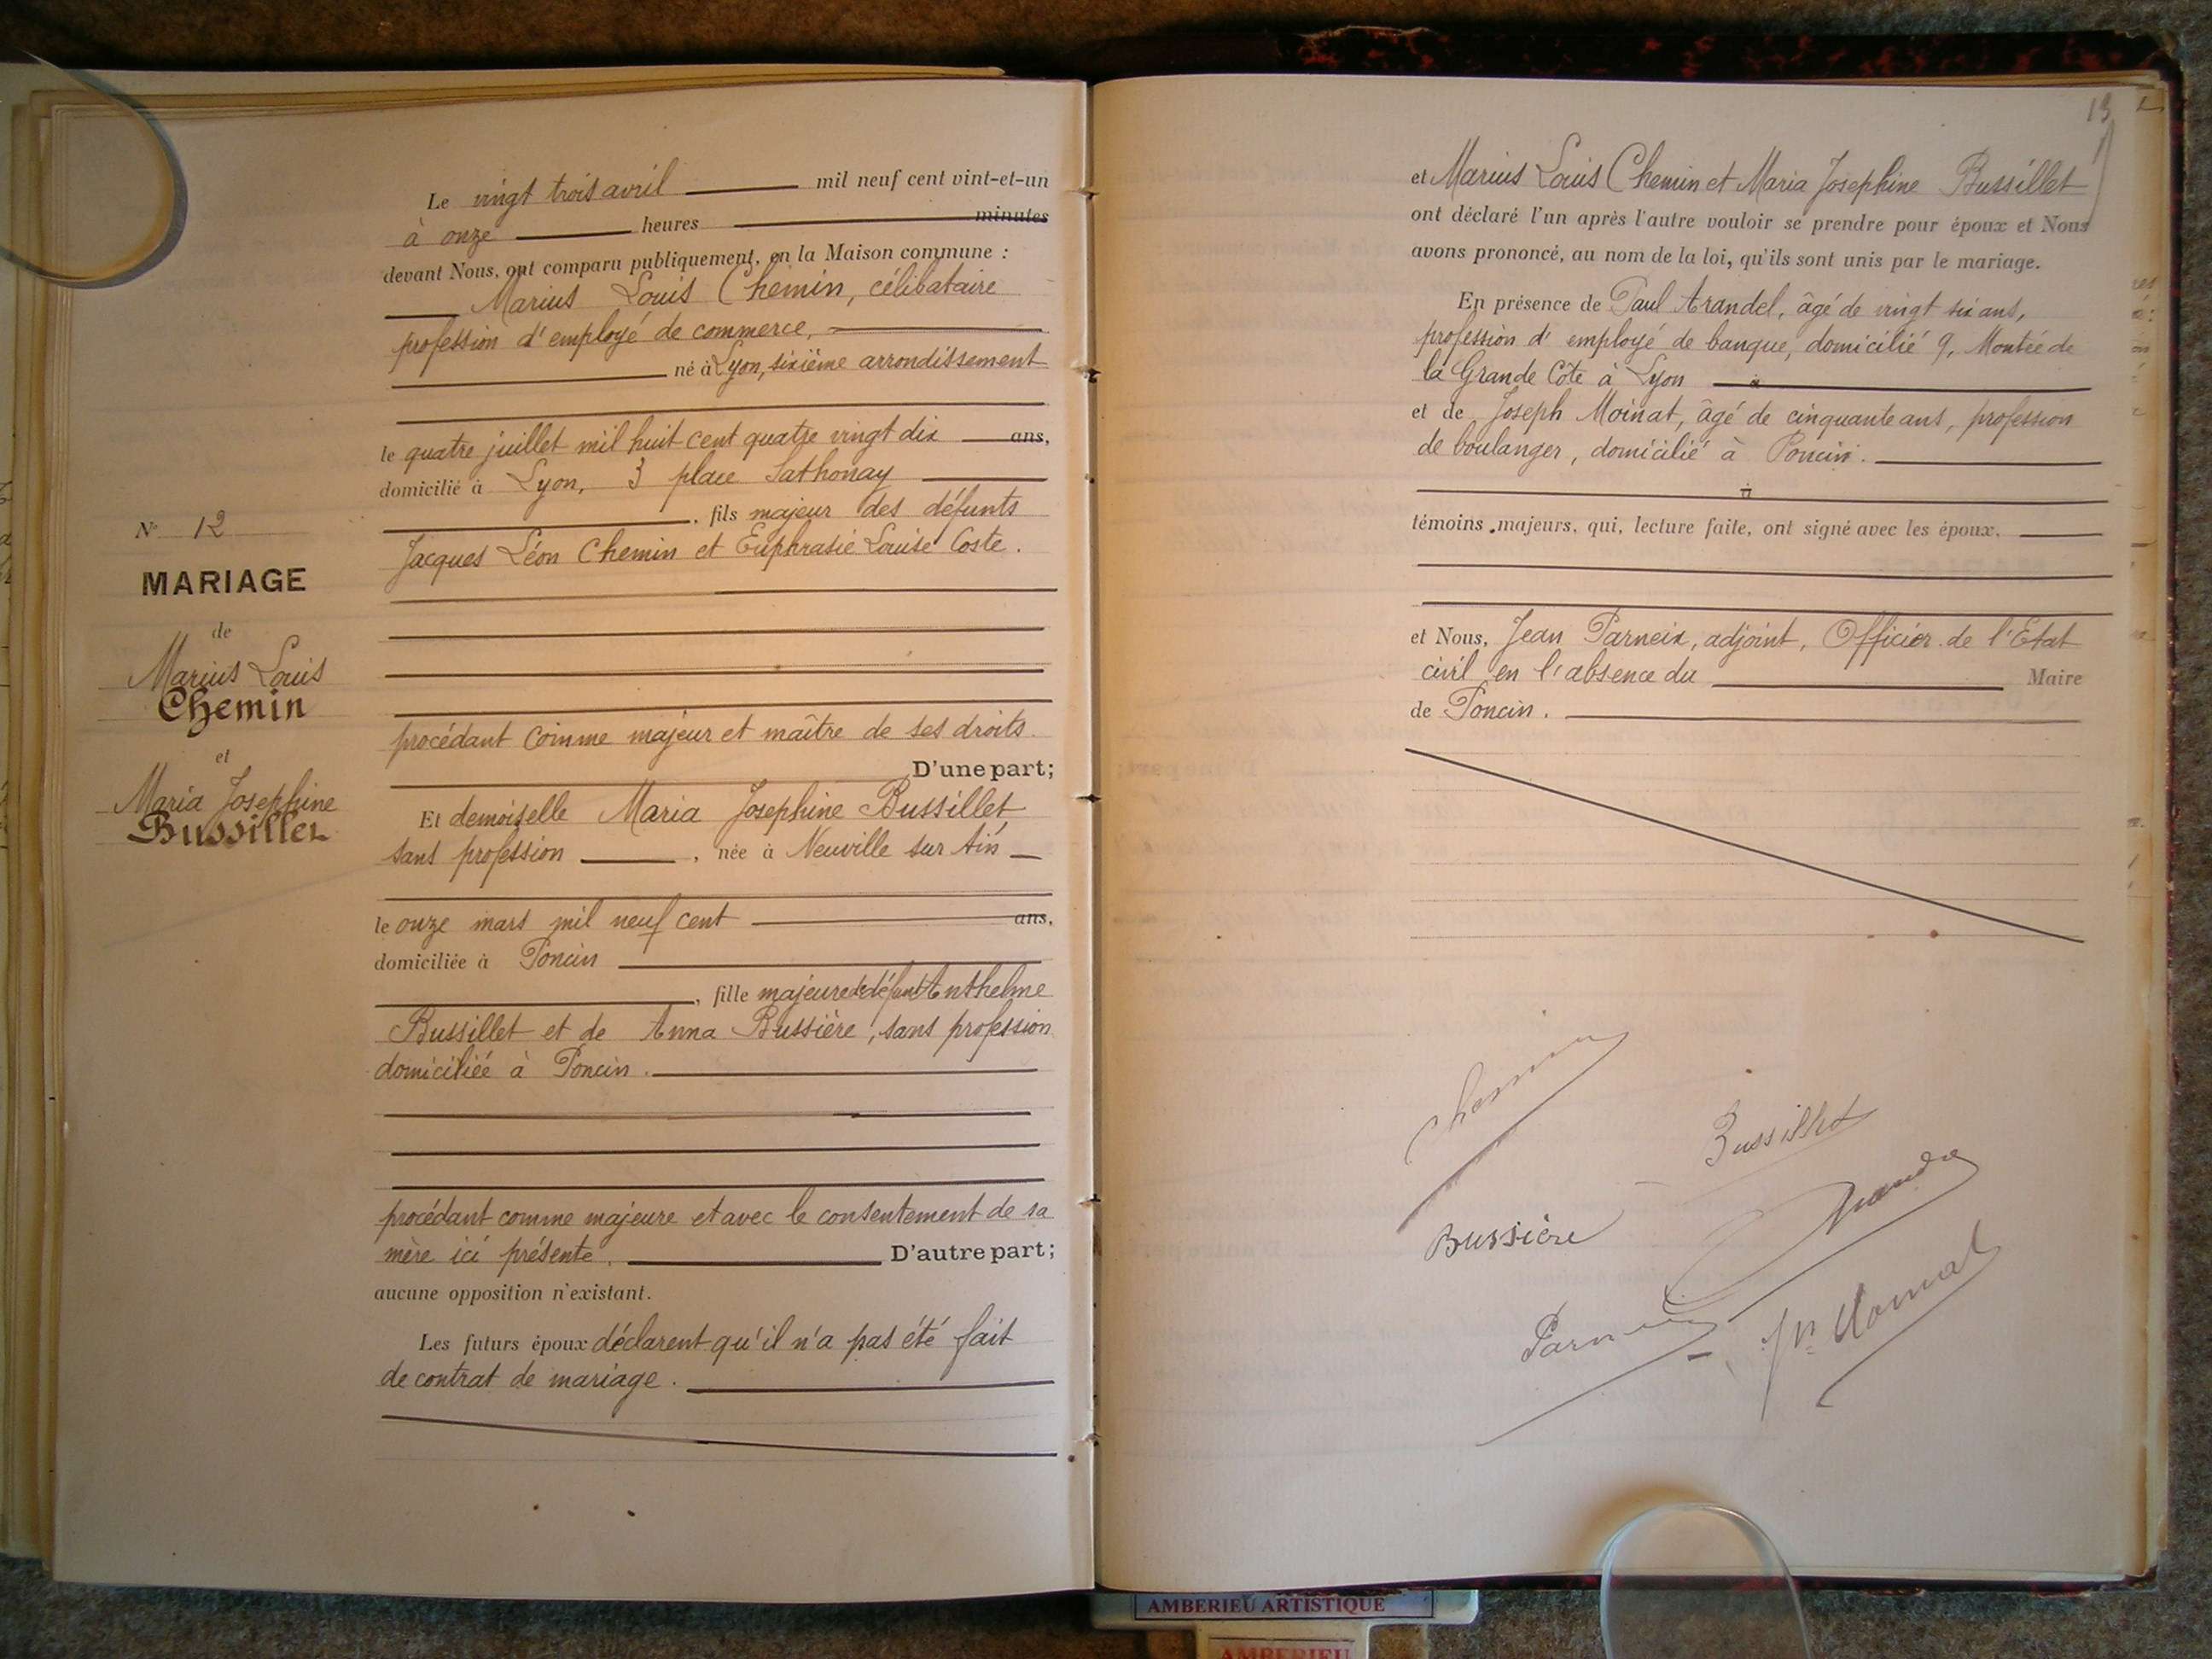 N° 12
MARIAGE
de
Marius Louis
Chemin
et
Maria Josephine
Bussillet
Le vingt trois avril mil neuf cent vint-et-un
à onze heures minutes
devant Nous, ont comparu publiquement, en la Maison commune :
Marius Louis Chemin, célibataire
profession d'employé de commerce,
né à Lyon, sixième arrondissement
le quatre juillet mil huit cent quatre vingt dix ans,
domicilié à Lyon, 3 place Sathonay
, fils majeur des défunts
Jacques Léon Chemin et Euphrasie Louise Coste.
procédant comme majeur et maître de ses droits.
D'une part;
Et demoiselle Maria Josephine Bussillet
sans profession , née à Neuville sur Ain
le onze mars mil neuf cent ans,
domiciliée à Poncin
, fille majeure de défunt Anthelme
Bussillet et de Anna Bussière, sans profession
domiciliée à Poncin.
procédant comme majeure et avec le consentement de sa
mère ici présente. D'autre part;
aucune opposition n'existant.
Les futurs époux déclarent qu'il n'a pas été fait
de contrat de mariage.
13
et Marius Louis Chemin et Maria Josephine Bussillet
ont déclaré l'un après l'autre vouloir se prendre pour époux et Nous
avons prononcé, au nom de la loi, qu'ils sont unis par le mariage.
En présence de Paul Arandel, âgé de vingt six ans,
profession d' employé de banque, domicilié 9, Montée de
la Grande Côte à Lyon
et de Joseph Moinat, âgé de cinquante ans, profession
de boulanger, domicilié à Poncin.
témoins majeurs, qui, lecture faite, ont signé avec les époux.
et Nous, Jean Parneix, adjoint, Officier de l'Etat
civil en l'absence du Maire
de Poncin.
Chemin
Bussillet
Bussière
AMBERIEU ARTISTIQUE
AMBERIEU